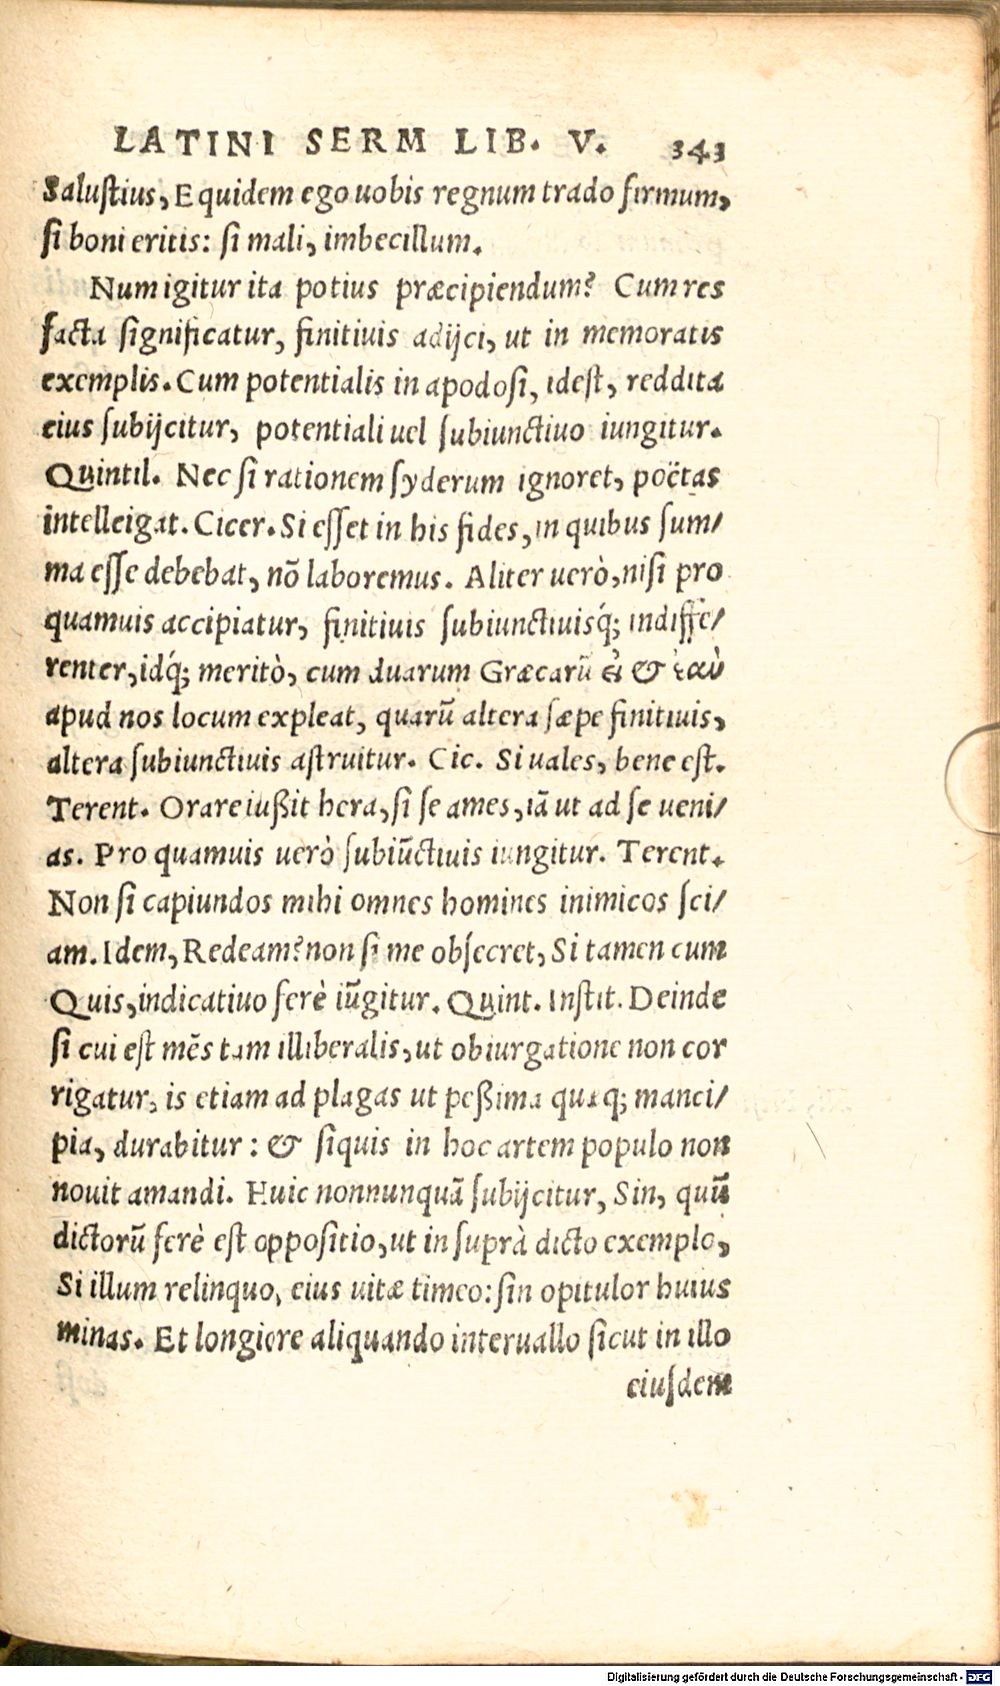 LATINI SERM LIB. V. 343
Salustius, Equidem ego uobis regnum trado firmum,
si boni eritis: si mali, imbecillum.
Num igitur ita potius præcipiendum? Cum res
facta significatur, finitiuis adijci, ut in memoratis
exemplis. Cum potentialis in apodosi, idest, reddita
eius subijcitur, potentiali uel subiunctiuo iungitur.
Quintil. Nec si rationem syderum ignoret, poëtas
intelleigat. Cicer. Si esset in his fides, in quibus sum/
ma esse debebat, nõ laboremus. Aliter uerò, nisi pro
quamuis accipiatur, finitiuis subiunctiuisq́; indiffe/
renter, idq́; meritò, cum duarum Græcarũ εἰ & ἐαὺ
apud nos locum expleat, quarũ altera sæpe finitiuis,
altera subiunctiuis astruitur. Cic. Si uales, bene est.
Terent. Orare iußit hera, si se ames, iã ut ad se ueni/
as. Pro quamuis uerò subiũctiuis iungitur. Terent.
Non si capiundos mihi omnes homines inimicos sci/
am. Idem, Redeam? non si me obsecret, Si tamen cum
Quis, indicatiuo ferè iũgitur. Quint. Instit. Deinde
si cui est mẽs tam illiberalis, ut obiurgatione non cor
rigatur, is etiam ad plagas ut peßima quæq; manci/
pia, durabitur: & siquis in hoc artem populo non
nouit amandi. Huic nonnunquã subijcitur, Sin, quũ
dictorũ ferè est oppositio, ut in suprà dicto exemplo,
Si illum relinquo, eius uitæ timeo: sin opitulor huius
minas. Et longiore aliquando interuallo sicut in illo
eiusdem
Digitalisierung gefördert durch die Deutsche Forschungsgemeinschaft - DFG